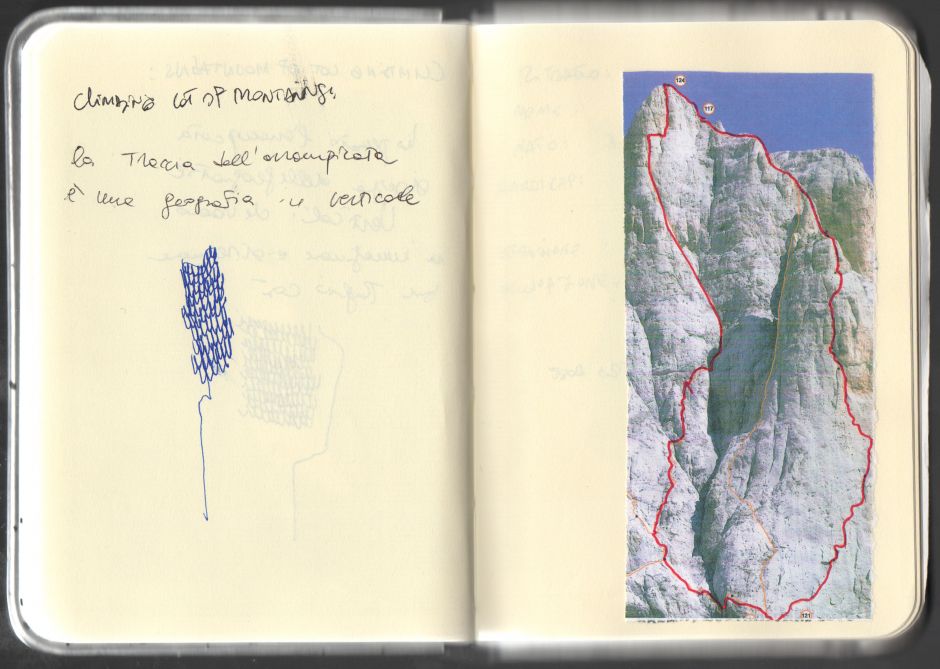 CLIMBING LOT OF MONTAINS:
la traccia dell'arrampicata
è una geografia in verticale
124
117
121